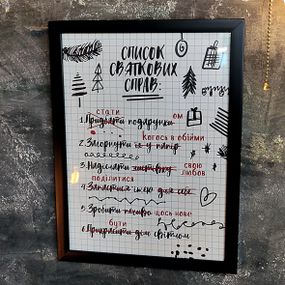 СПИСОК
СВЯТКОВИХ
СПРАВ:
стати ом
1. Придбати подарунки
Когось в обійми
2. Загорнути їх у папір
3. Надіслати листівку свою
любов
поділитися
4. Запастися їжею для себе
5. Зробити щось нове
бути
6. Прикрасити дім світлом